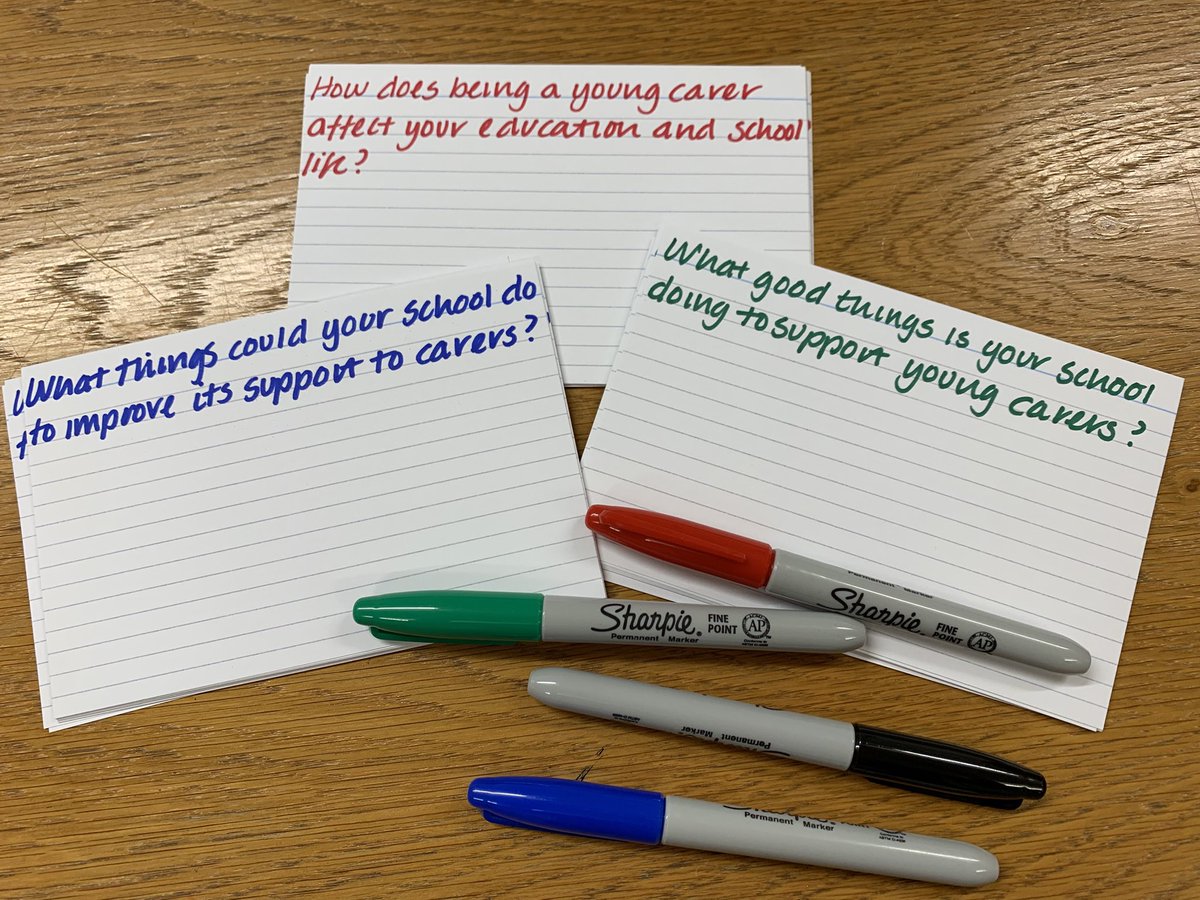 How does being a young carer
affect your education and school
life?
What things could your school do
to improve its support to carers?
What good things is your school
doing to support young carers?
Permanent Marker
Sharpie
FINE
POINT
AP
Sharpie.
Permanent Marker
FINE
POINT
AP
Permanent Marker
Permanent Marker